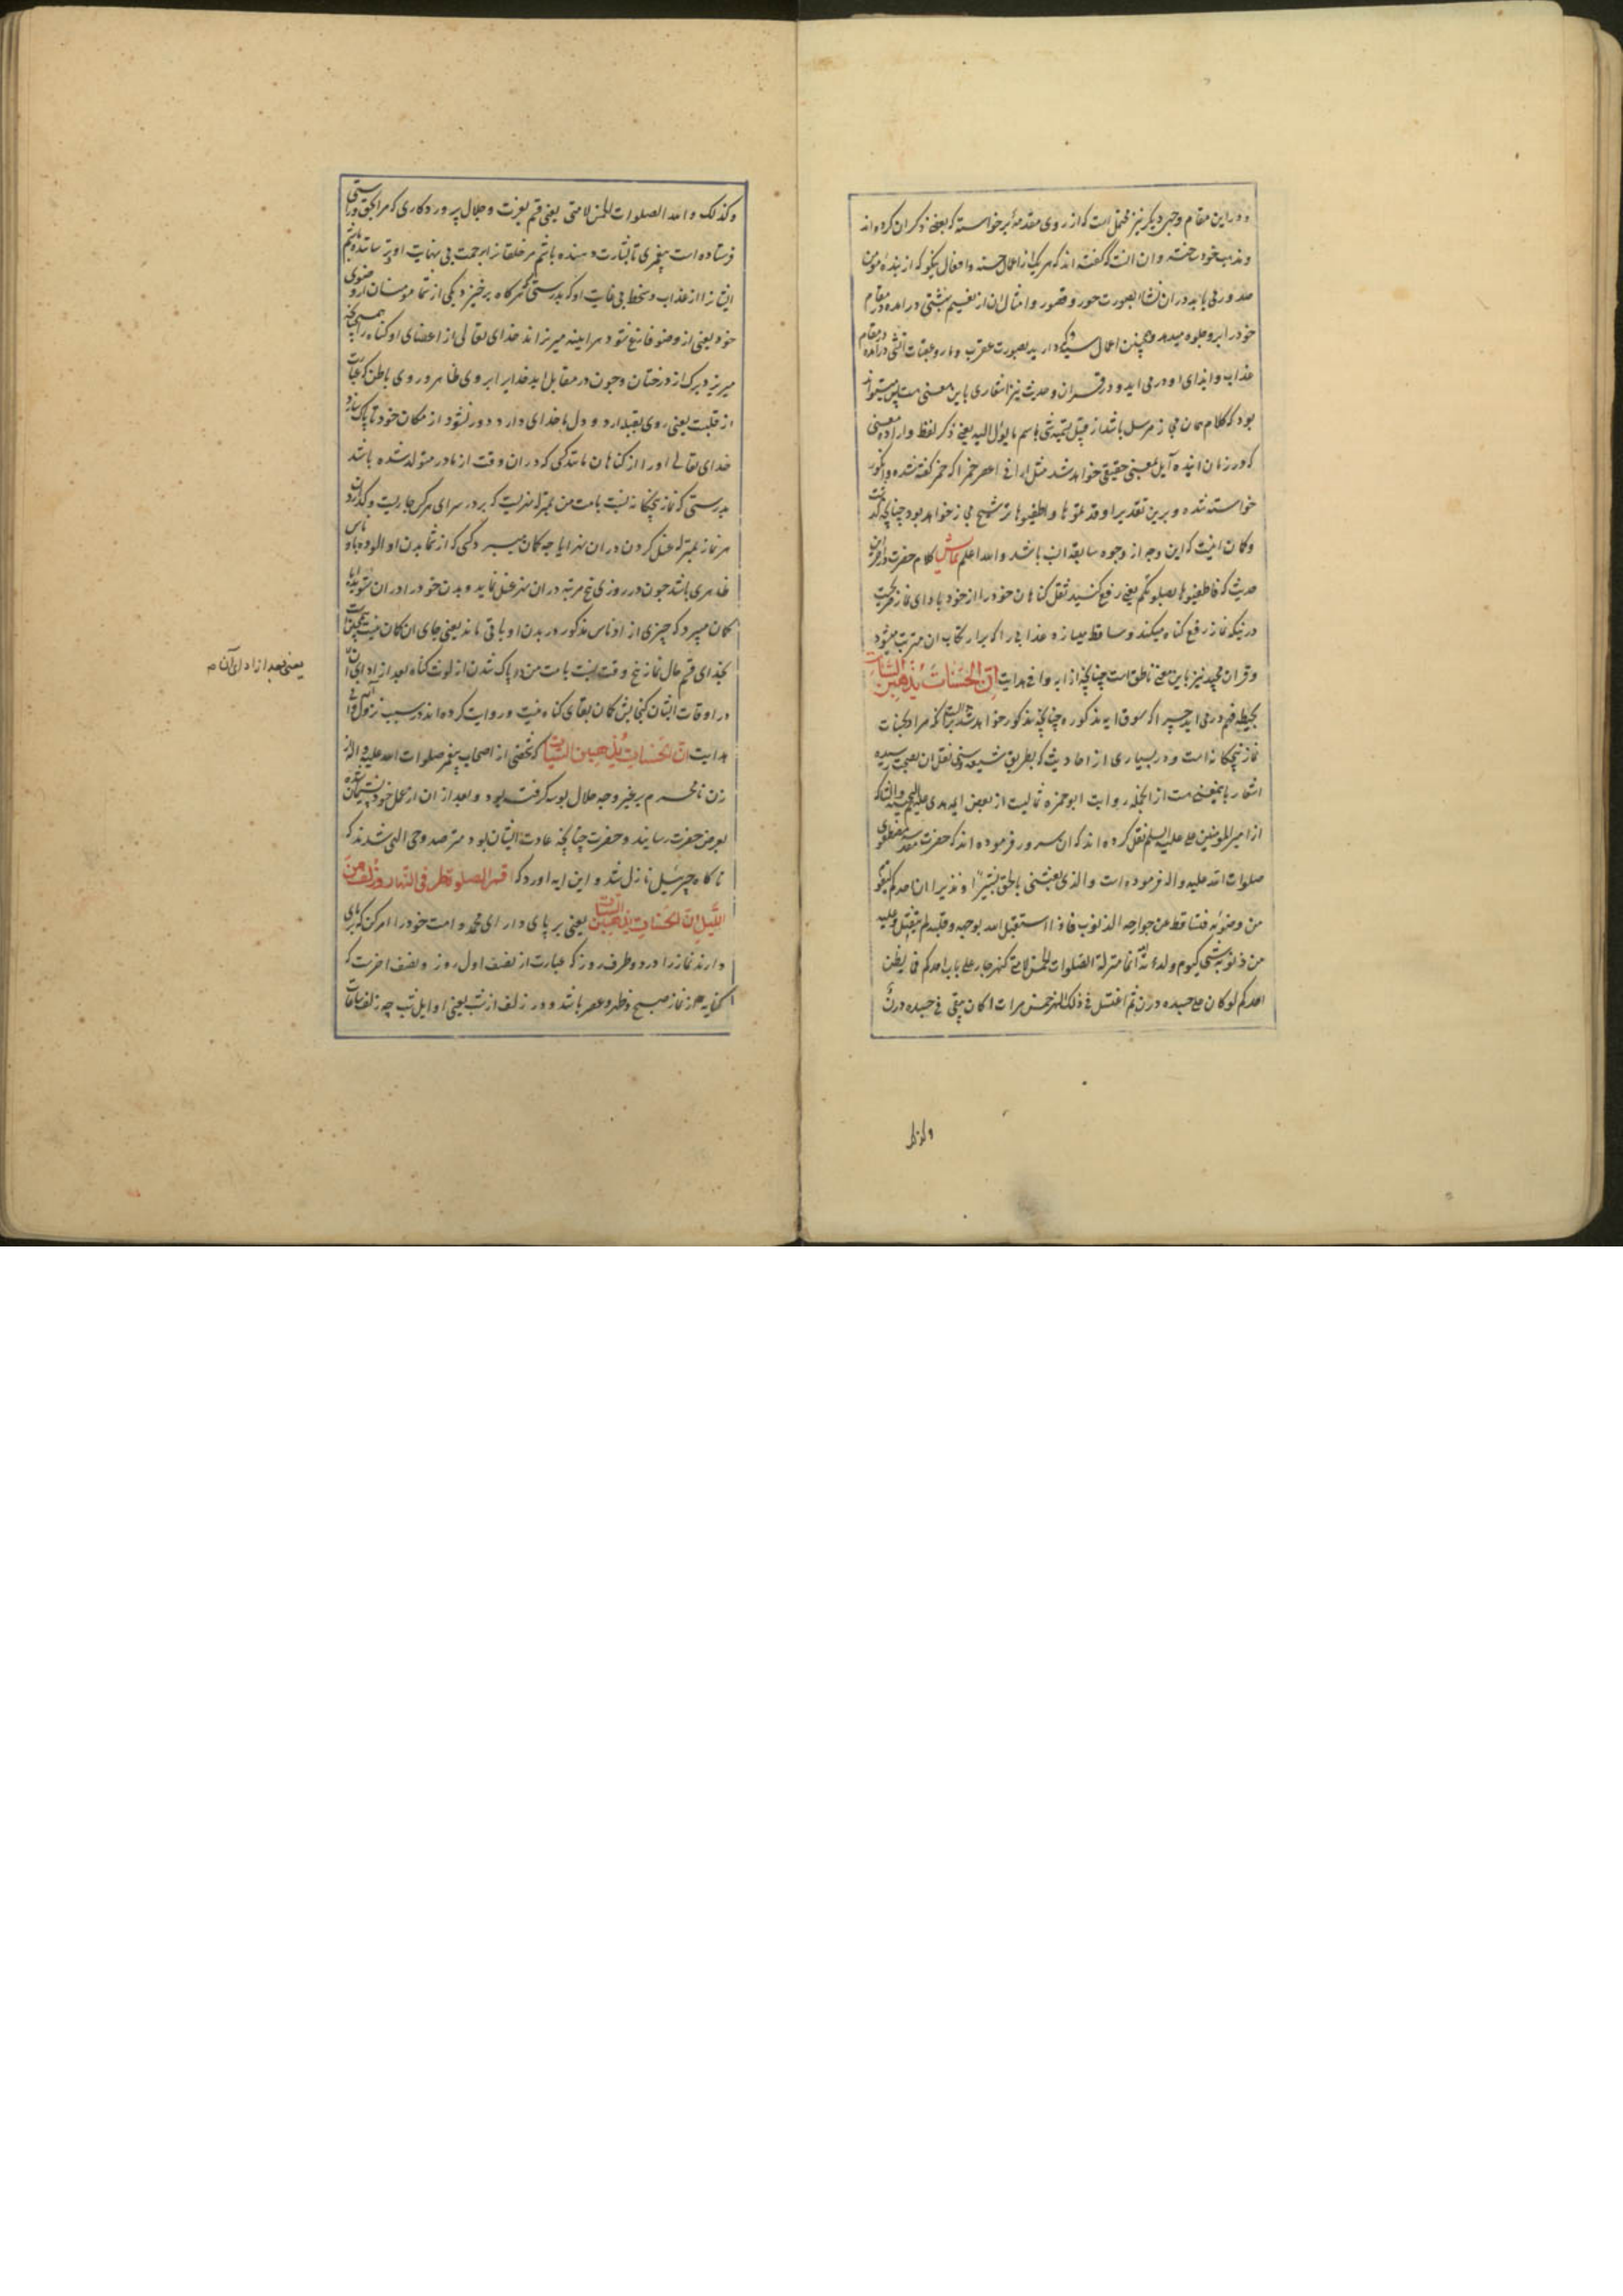 و در این مقام وجهی دیگر نیز محتمل است که از روی مقدمهٔ برخواسته که بعضی ذکر ان کرده‌اند
و مذهب خود ساخته و ان انست که گفته اند که هر یک از اعمال حسنه و افعال نیکو که از بنده مومن
صدور می یابد در ان نشأ بصورت حور و قصور و امثال ان از نعیم بهشتی در امده در مقام
خود در ابر و جلوه میدهد و همچنین اعمال سیئه کردارید بصورت عقرب و مار و عقبات آتشی در آمده در مقام
عذاب و ایذای او در می اید و در قران و حدیث نیز اشعاری باین معنی هست پس میتواند
بود که کلام همان مجاز مرسل باشد از قبیل تسمیه شی باسم ما یؤل الیه یعنی ذکر لفظ و اراده معنی
که در زمان اینده آیل بمعنی حقیقی خواهد شد مثل ارانی اعصر خمرا که خمر گفته شده و انگور
خواسته شده و برین تقدیر اوقدتموها و اطفیوها ترشیح مجاز خواهد بود چنانچه گذشت
و کان اینست که این وجه از وجوه سابقه انسب باشد و الله اعلم کلام حضرت در این
حدیث که فاطفیوها بصلوتکم یعنی رفع کنید ثقل کناهان خود را از خود بادای نماز
درینکه نماز رفع کناه میکند و ساقط میسازد عذابی را که برارتکاب ان مترتب میشود
و قران مجید نیز باین معنی ناطق است چنانچه از ایه وافی هدایت ان الحسنات یذهبن السیئات
بحیطه فهم در می اید چه سوق ایه مذکوره چنانچه مذکور خواهد شد که مراد بحسنات
نماز پنجکانه است و در بسیاری از احادیث که بطریق شیعه و سنی نقل ان بصحت رسیده
اشعار باینمعنی هست از انجمله روایت ابوحمزه ثمالیست از بعض ایمه هدی علیهم التحیه و الثنا که
از امیر المومنین علی علیه السلم نقل کرده اند که ان سرور فرموده اند که حضرت مصطفوی
صلوات الله علیه و اله فرموده است و الذی بعثنی بالحق بشیرا و نذیرا ان احدکم لیقوم
من وضوئه فتساقط عن جوارحه الذنوب فاذا استقبل الله بوجهه و قلبه لم ینفتل و علیه
من ذنوبه شی کیوم ولدته امه انما منزلة الصلوات الخمس لامتی کنهر جار علی باب احدکم فما یظن
احدکم لو کان علی جسده درن ثم اغتسل فی ذلک النهر خمس مرات اکان یبقی فی جسده درن
و کذلک و الله الصلوات الخمس لامتی یعنی قسم بعزت و جلال پروردکاری که مرا بحق و راستی
فرستاده است پیغمبری تا بشارت دهنده باشم مر خلقانرا برحمت بی نهایت او و ترساننده باشم
ایشانرا از عذاب و سخط بی غایت او که بدرستی که هرکاه برخیزد یکی از شما مومنان از وضوی
خود یعنی از وضو فارغ شود هر اینه میریزاند خدای تعالی از اعضای او کناه را همچنانکه
میریزد برک از درختان و چون در مقابل اید خدایرا بروی ظاهر و روی باطن که عبارت
از قلبست یعنی روی بقبله ارد و دل با خدای دارد دور نشود از مکان خود تا پاک سازد
خدای تعالی او را از کناهان مانند کسی که در ان وقت از مادر متولد شده باشد
بدرستی که نماز پنجکانه نسبت بامت من بمنزله نهریست که بر در سرای هرکس جاریست و گذاردن
هر نماز بمنزله غسل کردن در ان نهر ایا چه کمان میبرد کسی که از شما بدن او الوده باوساخ
ظاهری باشد چون در روزی پنج مرتبه در ان نهر غسل نماید و بدن خود را در ان بشوید ایا
کمان میبرد که چیزی از ادناس مذکور در بدن او باقی ماند یعنی جای ان کمان نیست همچنین است
بخدای قسم حال نماز پنج وقت نسبت بامت من در پاک شدن از لوث کناه بعد از ادای ان
در اوقات ایشان کنجایش کمان بقای کناه نیست و روایت کرده اند در سبب نزول ایه وافی
هدایت ان الحسنات یذهبن السیئات که شخصی از اصحاب پیغمبر صلوات الله علیه و اله از
زن نامحرم بر غیر وجه حلال بوسه گرفته بود و بعد از ان از عمل خود پشیمان شده
بعرض حضرت رسانید و حضرت چنانچه عادت ایشان بود مترصد وحی الهی شدند که
ناکاه جبرئیل نازل شد و این ایه اورد که اقم الصلوة طرفی النهار و زلفا من
اللیل ان الحسنات یذهبن السیئات یعنی بر پای دار ای محمد و امت خود را امر کن که بر پای
دارند نماز را در دو طرف روز که عبارت از نصف اول روز و نصف اخرست که
کنایه از نماز صبح و ظهر و عصر باشد و در زلف از شب یعنی اوایل شب چه زلف ساعات
یعنی بعد از ادای آن م
و کذلک